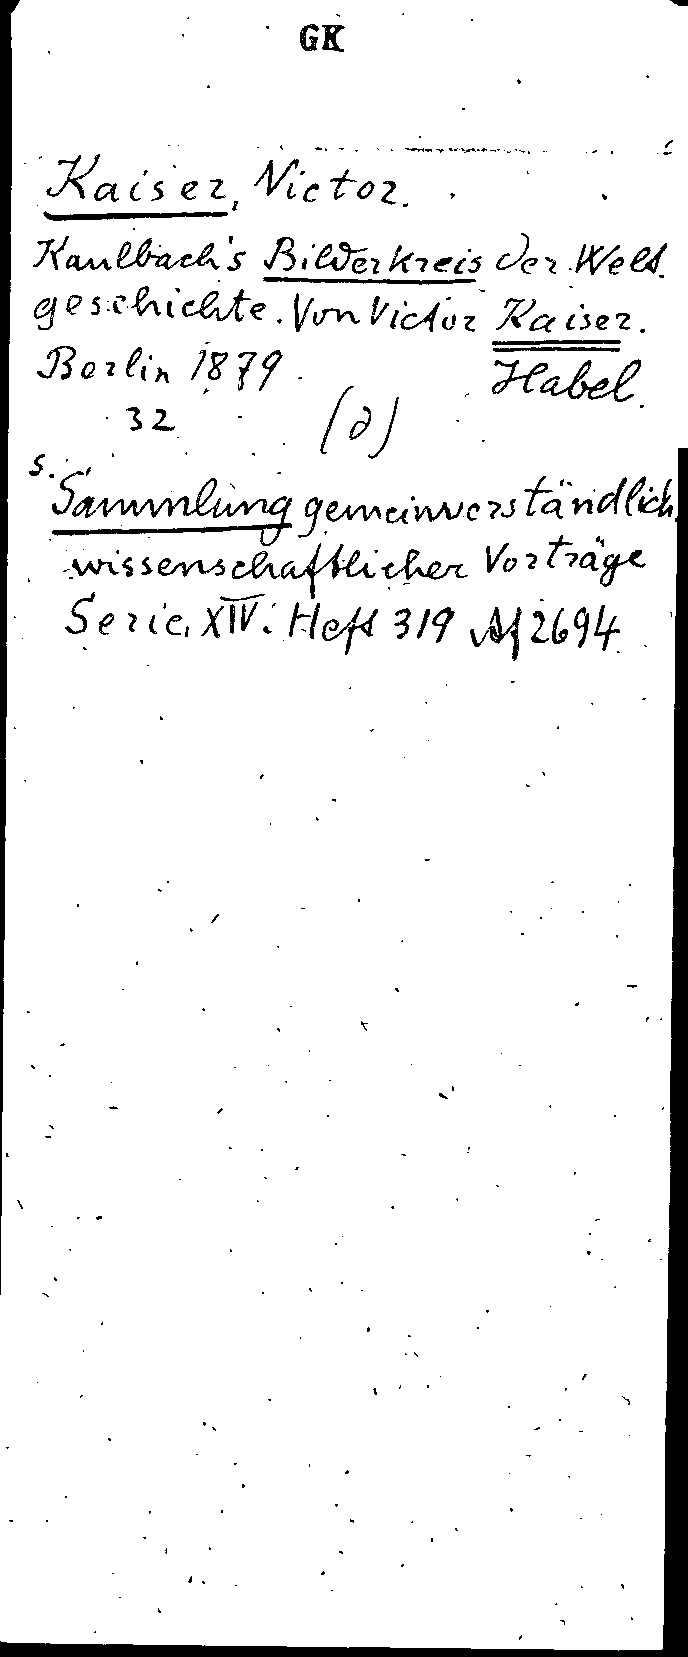 GK
Kaiser, Victor.
Kaulbach's Bilderkreis der Welt.
geschichte. Von Victor Kaiser.
Berlin 1879. Habel.
32 (d)
s. Sammlung gemeinverständlich
wissenschaftlicher Vorträge
Serie XIV. Heft 319 Af 2694